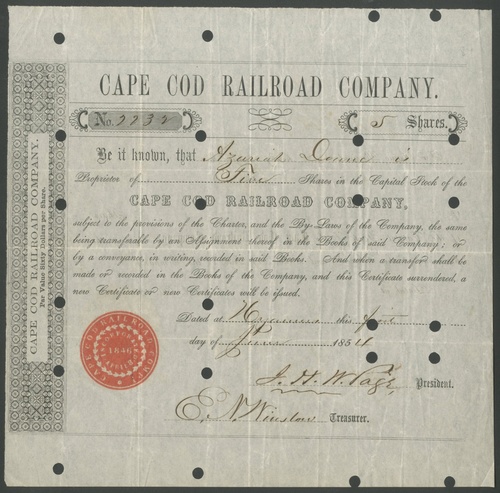 CAPE COD RAILROAD COMPANY.
No. 2232
5 Shares.
Be it known, that Azariah Doane is
Proprietor of Five Shares in the Capital Stock of the
CAPE COD RAILROAD COMPANY,
subject to the provisions of the Charter, and the By-Laws of the Company, the same
being transferable by an Assignment thereof in the Books of said Company; or
by a conveyance, in writing, recorded in said Books. And when a transfer shall be
made or recorded in the Books of the Company, and this Certificate surrendered, a
new Certificate or new Certificates will be issued.
Dated at Hyannis this first
day of June 1854
J. H. W. Page, President.
E. N. Winslow Treasurer.
CAPE COD RAILROAD COMPANY.
Par Value Sixty Dollars per Share.
CAPE COD RAILROAD COMPY
1846